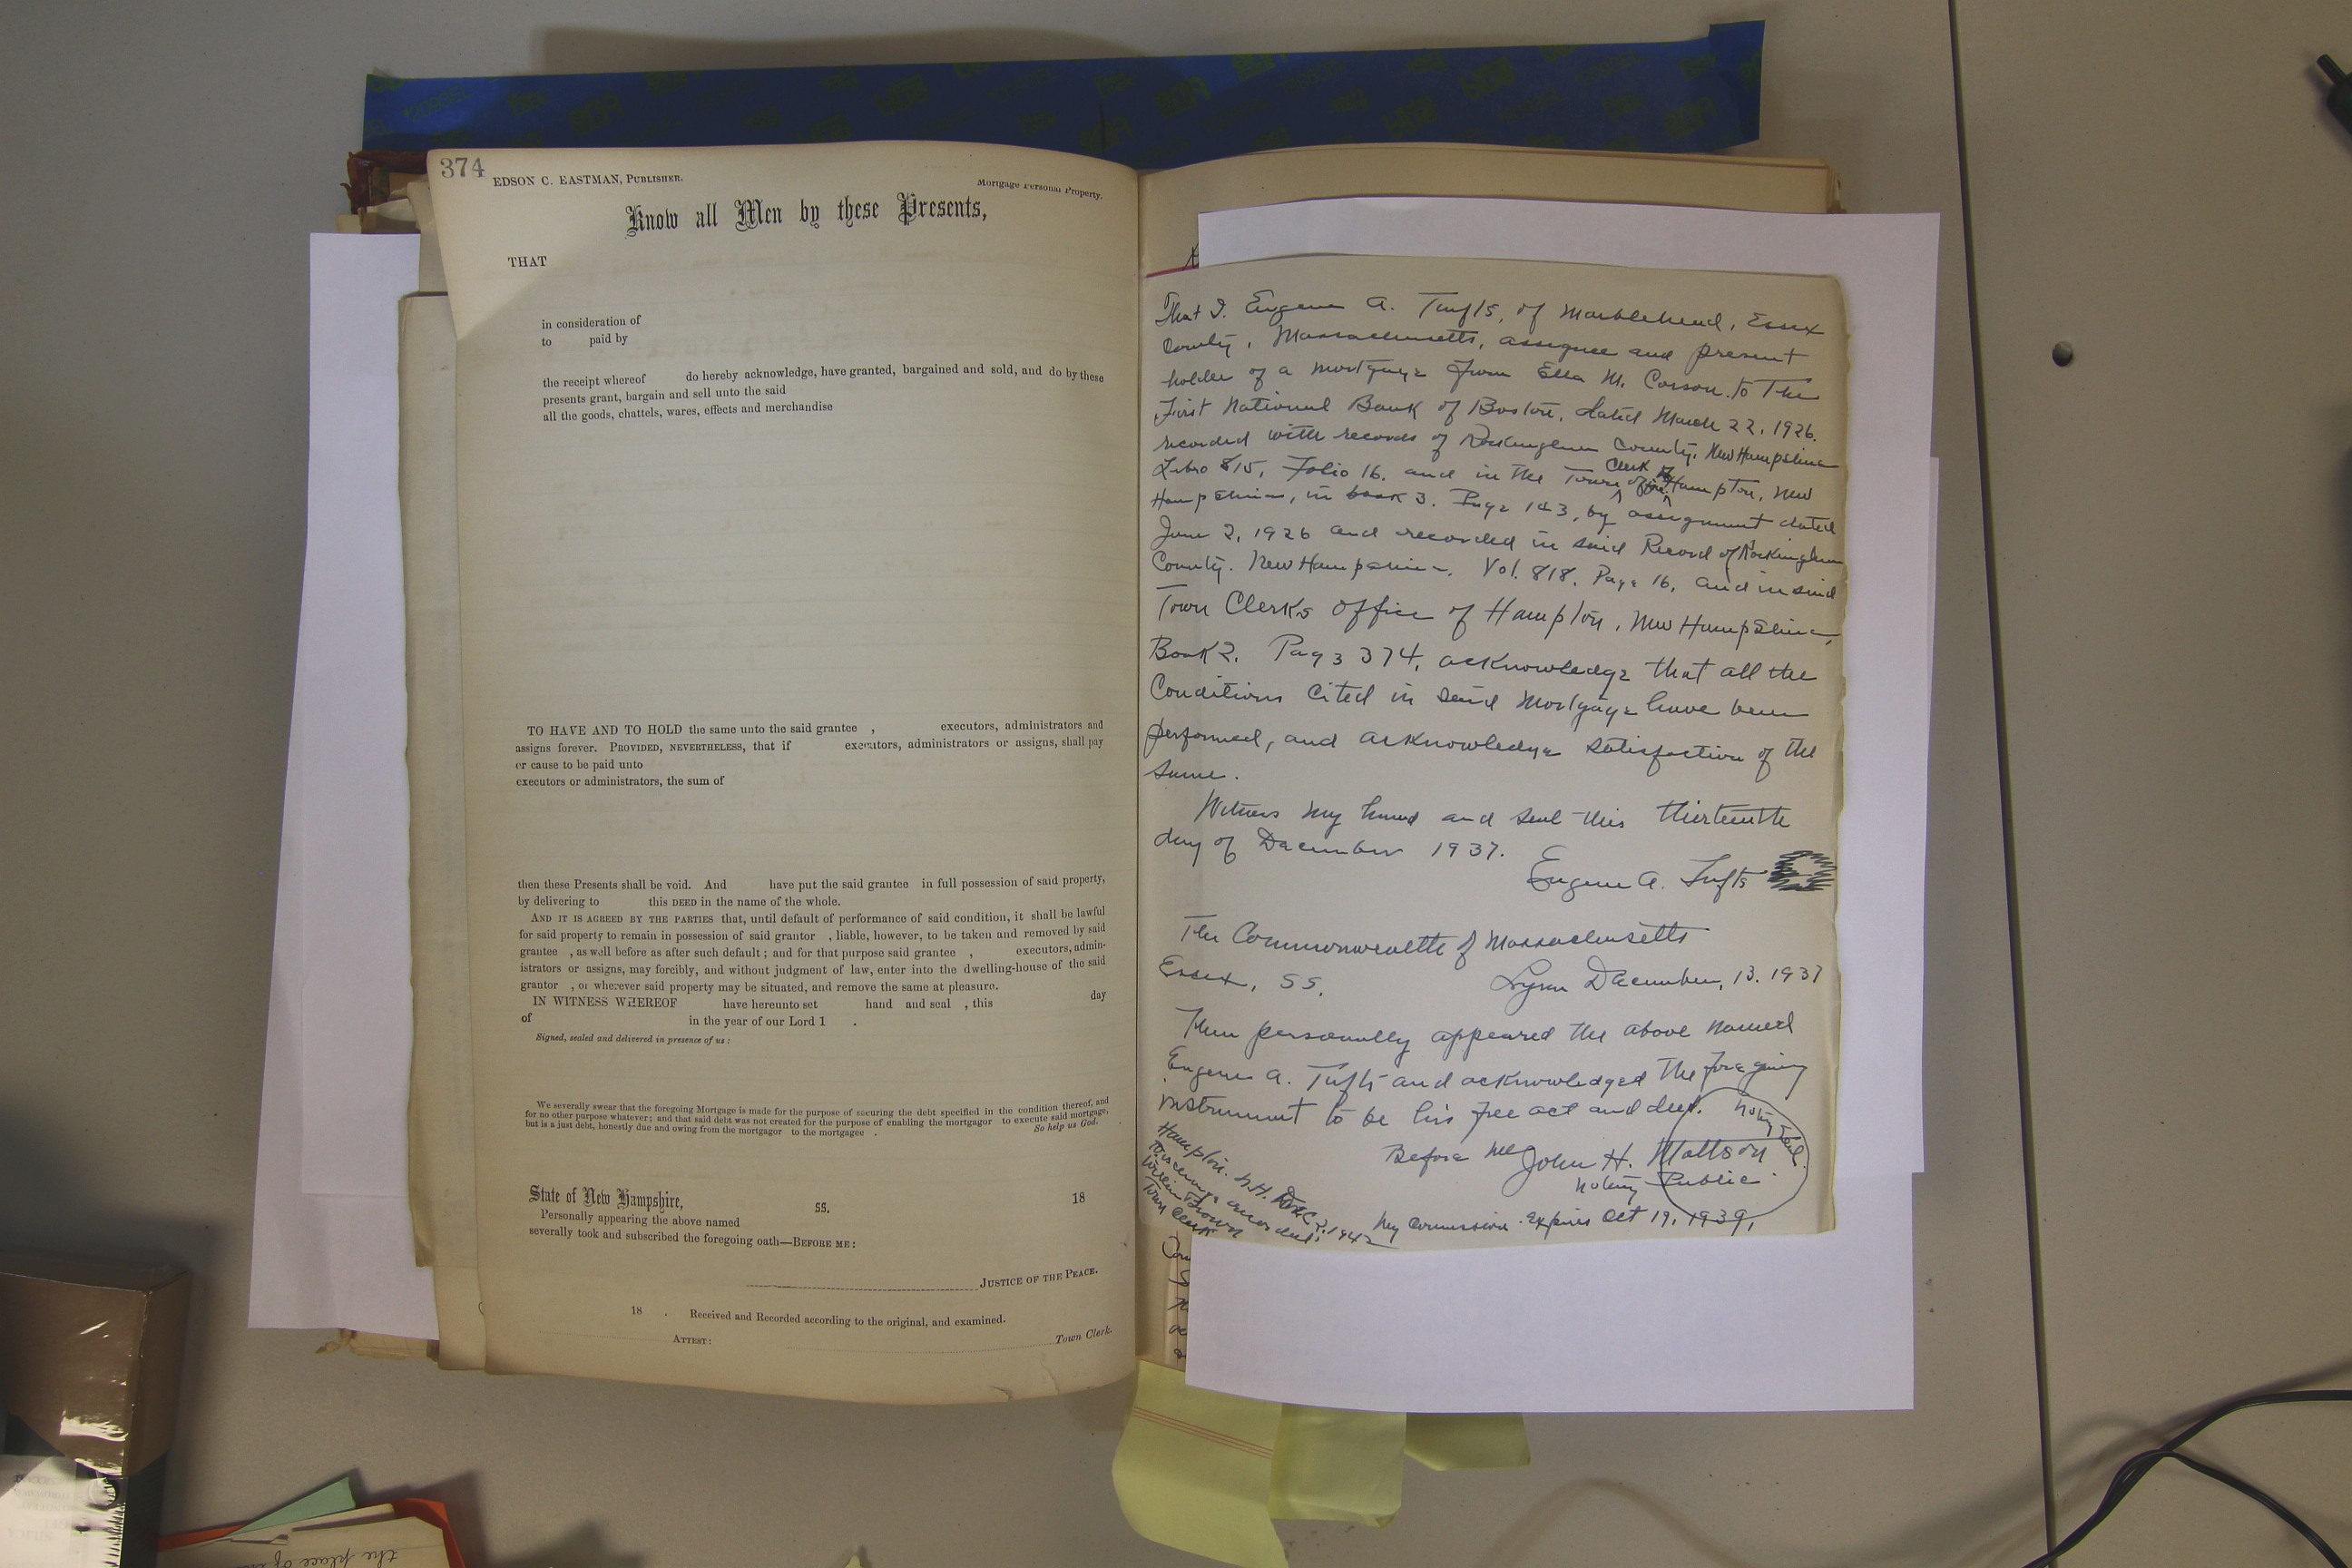 374
EDSON C. EASTMAN, PUBLISHER.
Mortgage Personal Property.
Know all Men by these Presents,
THAT
in consideration of
to paid by
the receipt whereof do hereby acknowledge, have granted, bargained and sold, and do by these
presents grant, bargain and sell unto the said
all the goods, chattels, wares, effects and merchandise
TO HAVE AND TO HOLD the same unto the said grantee , executors, administrators and
assigns forever. PROVIDED, NEVERTHELESS, that if executors, administrators or assigns, shall pay
or cause to be paid unto
executors or administrators, the sum of
then these Presents shall be void. And have put the said grantee in full possession of said property,
by delivering to this DEED in the name of the whole.
AND IT IS AGREED BY THE PARTIES that, until default of performance of said condition, it shall be lawful
for said property to remain in possession of said grantor , liable, however, to be taken and removed by said
grantee , as well before as after such default; and for that purpose said grantee , executors, admin-
istrators or assigns, may forcibly, and without judgment of law, enter into the dwelling-house of the said
grantor , or wherever said property may be situated, and remove the same at pleasure.
IN WITNESS WHEREOF have hereunto set hand and seal , this day
of in the year of our Lord 1 .
Signed, sealed and delivered in presence of us:
We severally swear that the foregoing Mortgage is made for the purpose of securing the debt specified in the condition thereof, and
for no other purpose whatever; and that said debt was not created for the purpose of enabling the mortgagor to execute said mortgage,
but is a just debt, honestly due and owing from the mortgagor to the mortgagee . So help us God.
State of New Hampshire, SS. 18
Personally appearing the above named
severally took and subscribed the foregoing oath—BEFORE ME:
JUSTICE OF THE PEACE.
18 . Received and Recorded according to the original, and examined.
ATTEST: Town Clerk.
That I. Eugene A. Tufts, of Marblehead, Essex
County, Massachusetts, assignee and present
holder of a mortgage from Ella M. Corson to The
First National Bank of Boston, dated March 22, 1926.
recorded with records of Rockingham County, New Hampshire
Libro 815, Folio 16. and in the Town Clerk of Hampton, New
Hampshire, in book 3. Page 143, by assignment dated
June 2, 1926 and recorded in said Record of Rockingham
County. New Hampshire. Vol. 818. Page 16, and in said
Town Clerks office of Hampton, New Hampshire,
Book 2. Page 374, acknowledge that all the
Conditions cited in said Mortgage have been
performed, and acknowledge satisfaction of the
same.
Witness my hand and seal this thirteenth
day of December 1937.
Eugene A. Tufts
The Commonwealth of Massachusetts
Essex, SS. Lynn December, 13. 1937
Then personally appeared the above named
Eugene A. Tufts and acknowledged the foregoing
instrument to be his free act and deed.
Notary Seal.
Before me John H. Mattson
Notary Public
My Commission Expires Oct 19, 1939,
Hampton. N.H. Dec 2, 1942
Town Clerk